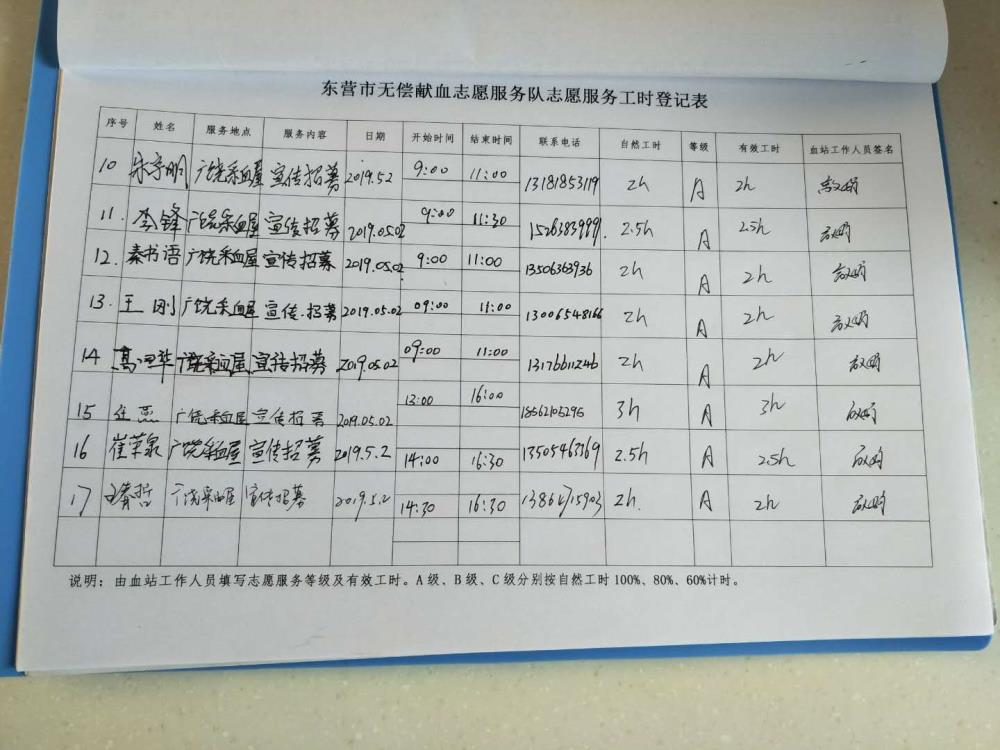 东营市无偿献血志愿服务队志愿服务工时登记表
序号 姓名 服务地点 服务内容 日期 开始时间 结束时间 联系电话 自然工时 等级 有效工时 血站工作人员签名
10 广饶采血屋 宣传招募 2019.5.2 9:00 11:00 13181853119 2h A 2h
11. 李锋 广饶采血屋 宣传招募 2019.05.02 9:00 11:30 15263839991. 2.5h A 2.5h
12. 秦书语 广饶采血屋 宣传招募 2019.05.02 9:00 11:00 13506363936 2h A 2h
13. 王刚 广饶采血屋 宣传.招募 2019.05.02 09:00 11:00 13006548166 2h A 2h
14 广饶采血屋 宣传招募 2019.05.02 09:00 11:00 13176611246 2h A 2h
15 广饶采血屋 宣传招募 2019.05.02 13:00 16:00 18562105295 3h A 3h
16 崔萃泉 广饶采血屋 宣传招募 2019.5.2 14:00 16:30 13505463769 2.5h A 2.5h
17 广饶采血屋 宣传招募 2019.5.2 14:30 16:30 13864715903 2h. A 2h
说明：由血站工作人员填写志愿服务等级及有效工时。A级、B级、C级分别按自然工时100%、80%、60%计时。